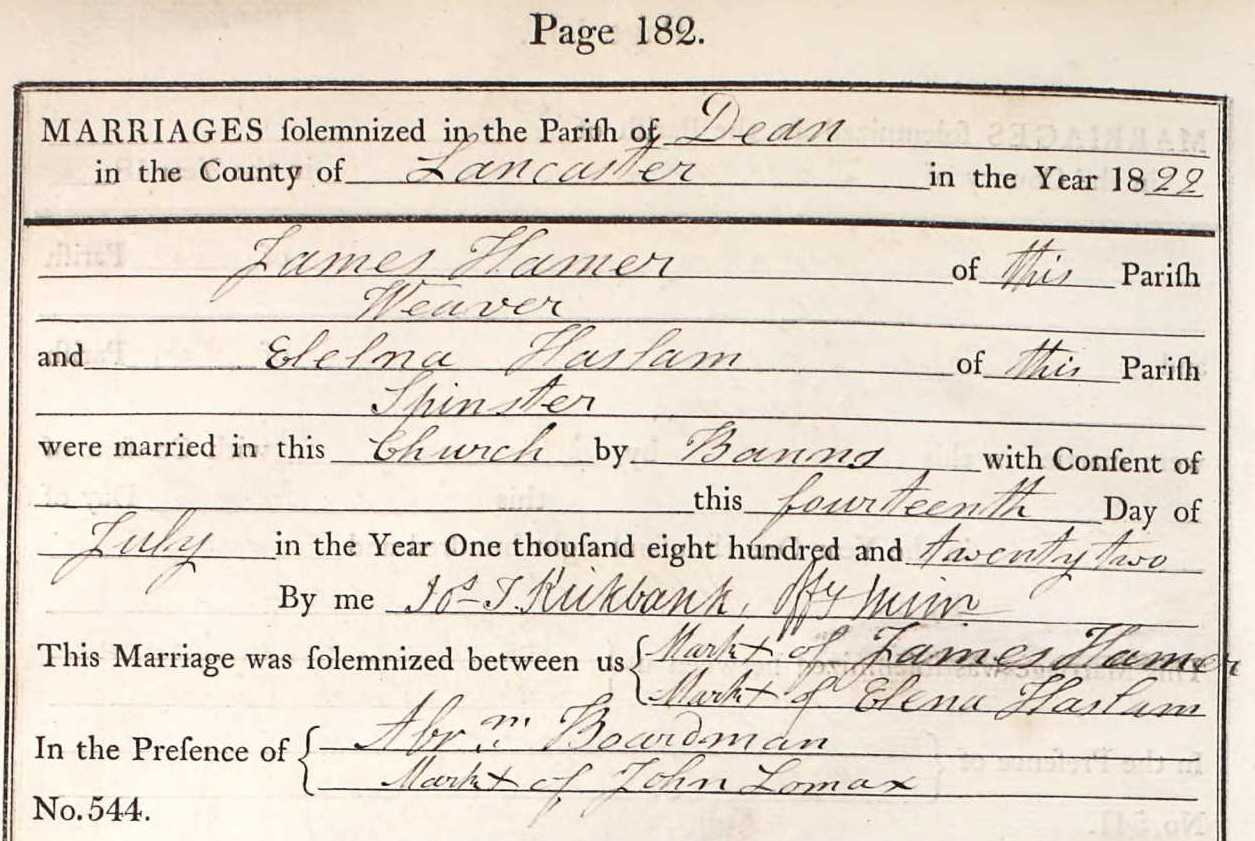 Page 182.
MARRIAGES ſolemnized in the Pariſh of Dean
in the County of Lancaster in the Year 1822
James Hamer of this Pariſh
Weaver
and Elelna Haslam of this Pariſh
Spinster
were married in this Church by Banns with Conſent of
this fourteenth Day of
July in the Year One thouſand eight hundred and twenty two
By me Jos. T. Kirkbank, Offg Minr.
This Marriage was ſolemnized between us { Mark x of James Hamer
Mark x of Elena Haslam
In the Preſence of { Abrm. Boardman
Mark x of John Lomax
No. 544.